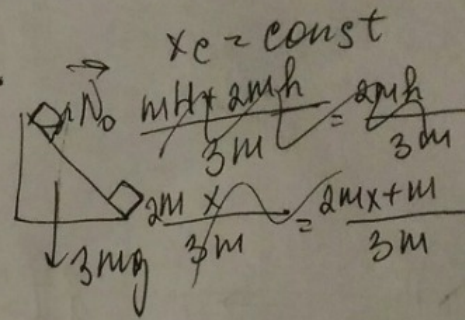 xc = const
N₀
mH + 2mh / 3m = 2mh / 3m
2m x / 3m = 2mx + m / 3m
3mg